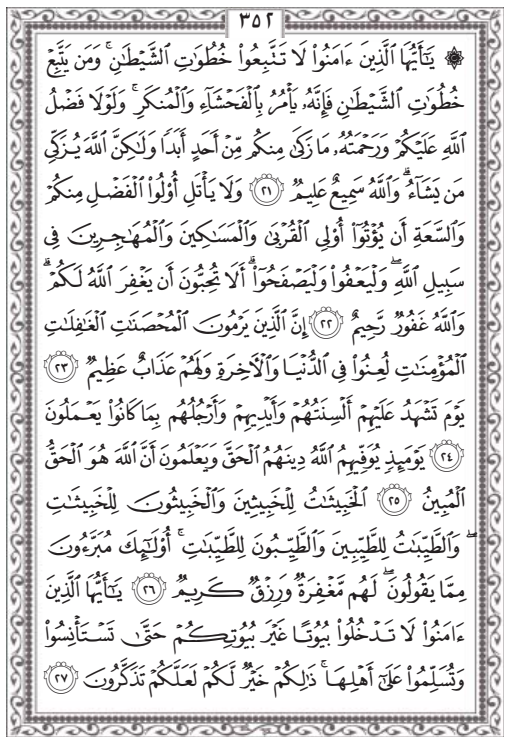 ٣٥٢
۞ يَـٰٓأَيُّهَا ٱلَّذِينَ ءَامَنُوا۟ لَا تَتَّبِعُوا۟ خُطُوَٰتِ ٱلشَّيْطَـٰنِ ۚ وَمَن يَتَّبِعْ
خُطُوَٰتِ ٱلشَّيْطَـٰنِ فَإِنَّهُۥ يَأْمُرُ بِٱلْفَحْشَآءِ وَٱلْمُنكَرِ ۚ وَلَوْلَا فَضْلُ
ٱللَّهِ عَلَيْكُمْ وَرَحْمَتُهُۥ مَا زَكَىٰ مِنكُم مِّنْ أَحَدٍ أَبَدًا وَلَـٰكِنَّ ٱللَّهَ يُزَكِّى
مَن يَشَآءُ ۗ وَٱللَّهُ سَمِيعٌ عَلِيمٌ ٢١ وَلَا يَأْتَلِ أُو۟لُوا۟ ٱلْفَضْلِ مِنكُمْ
وَٱلسَّعَةِ أَن يُؤْتُوٓا۟ أُو۟لِى ٱلْقُرْبَىٰ وَٱلْمَسَـٰكِينَ وَٱلْمُهَـٰجِرِينَ فِى
سَبِيلِ ٱللَّهِ ۖ وَلْيَعْفُوا۟ وَلْيَصْفَحُوٓا۟ ۗ أَلَا تُحِبُّونَ أَن يَغْفِرَ ٱللَّهُ لَكُمْ ۗ
وَٱللَّهُ غَفُورٌ رَّحِيمٌ ٢٢ إِنَّ ٱلَّذِينَ يَرْمُونَ ٱلْمُحْصَنَـٰتِ ٱلْغَـٰفِلَـٰتِ
ٱلْمُؤْمِنَـٰتِ لُعِنُوا۟ فِى ٱلدُّنْيَا وَٱلْـَٔاخِرَةِ وَلَهُمْ عَذَابٌ عَظِيمٌ ٢٣
يَوْمَ تَشْهَدُ عَلَيْهِمْ أَلْسِنَتُهُمْ وَأَيْدِيهِمْ وَأَرْجُلُهُم بِمَا كَانُوا۟ يَعْمَلُونَ
٢٤ يَوْمَئِذٍ يُوَفِّيهِمُ ٱللَّهُ دِينَهُمُ ٱلْحَقَّ وَيَعْلَمُونَ أَنَّ ٱللَّهَ هُوَ ٱلْحَقُّ
ٱلْمُبِينُ ٢٥ ٱلْخَبِيثَـٰتُ لِلْخَبِيثِينَ وَٱلْخَبِيثُونَ لِلْخَبِيثَـٰتِ
ۖ وَٱلطَّيِّبَـٰتُ لِلطَّيِّبِينَ وَٱلطَّيِّبُونَ لِلطَّيِّبَـٰتِ ۚ أُو۟لَـٰٓئِكَ مُبَرَّءُونَ
مِمَّا يَقُولُونَ ۖ لَهُم مَّغْفِرَةٌ وَرِزْقٌ كَرِيمٌ ٢٦ يَـٰٓأَيُّهَا ٱلَّذِينَ
ءَامَنُوا۟ لَا تَدْخُلُوا۟ بُيُوتًا غَيْرَ بُيُوتِكُمْ حَتَّىٰ تَسْتَأْنِسُوا۟
وَتُسَلِّمُوا۟ عَلَىٰٓ أَهْلِهَا ۚ ذَٰلِكُمْ خَيْرٌ لَّكُمْ لَعَلَّكُمْ تَذَكَّرُونَ ٢٧